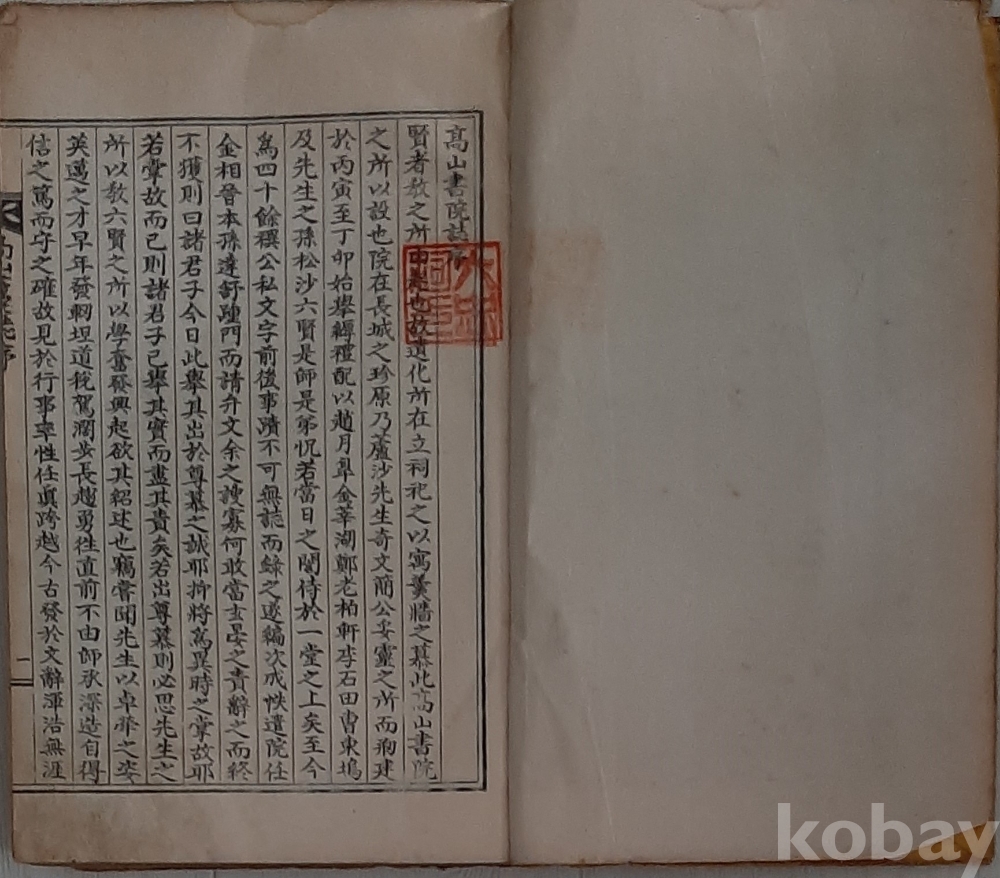 高山書院誌序
賢者教之所由起也故道化所在立祠祀之以寓羹墻之慕此高山書院
之所以設也院在長城之珍原乃蘆沙先生奇文簡公妥靈之所而刱建
於丙寅至丁卯始擧縟禮配以趙月皐金莘湖鄭老柏軒李石田曺東塢
及先生之孫松沙六賢是師是弟怳若當日之誾侍於一堂之上矣至今
爲四十餘禩公私文字前後事蹟不可無誌而錄之遂編次成帙遣院任
金相晉本孫達舒踵門而請弁文余之謏寡何敢當玄晏之責辭之而終
不獲則曰諸君子今日此擧其出於尊慕之誠耶抑將爲異時之掌故耶
若掌故而已則諸君子已擧其實而盡其責矣若出尊慕則必思先生之
所以敎六賢之所以學奮發興起欲其紹述也竊嘗聞先生以卓犖之姿
英邁之才早年發軔坦道稅駕濶步長趨勇往直前不由師承深造自得
信之篤而守之確故見於行事率性任眞跨越今古發於文辭渾浩無涯
高山書院誌序
一
kobay